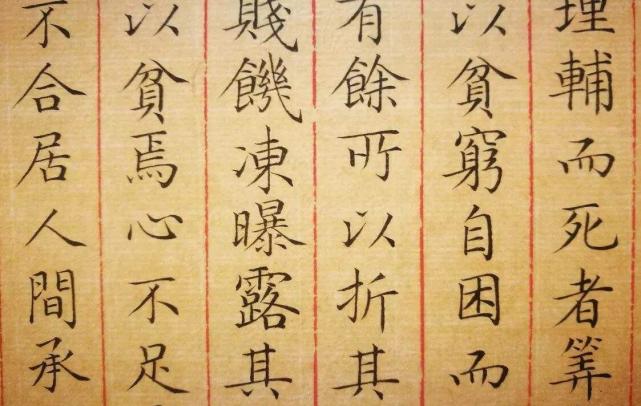 輔而死者筭
以貧窮自困而
有餘所以折其
賤饑凍曝露其
以貧焉心不足
不合居人間承